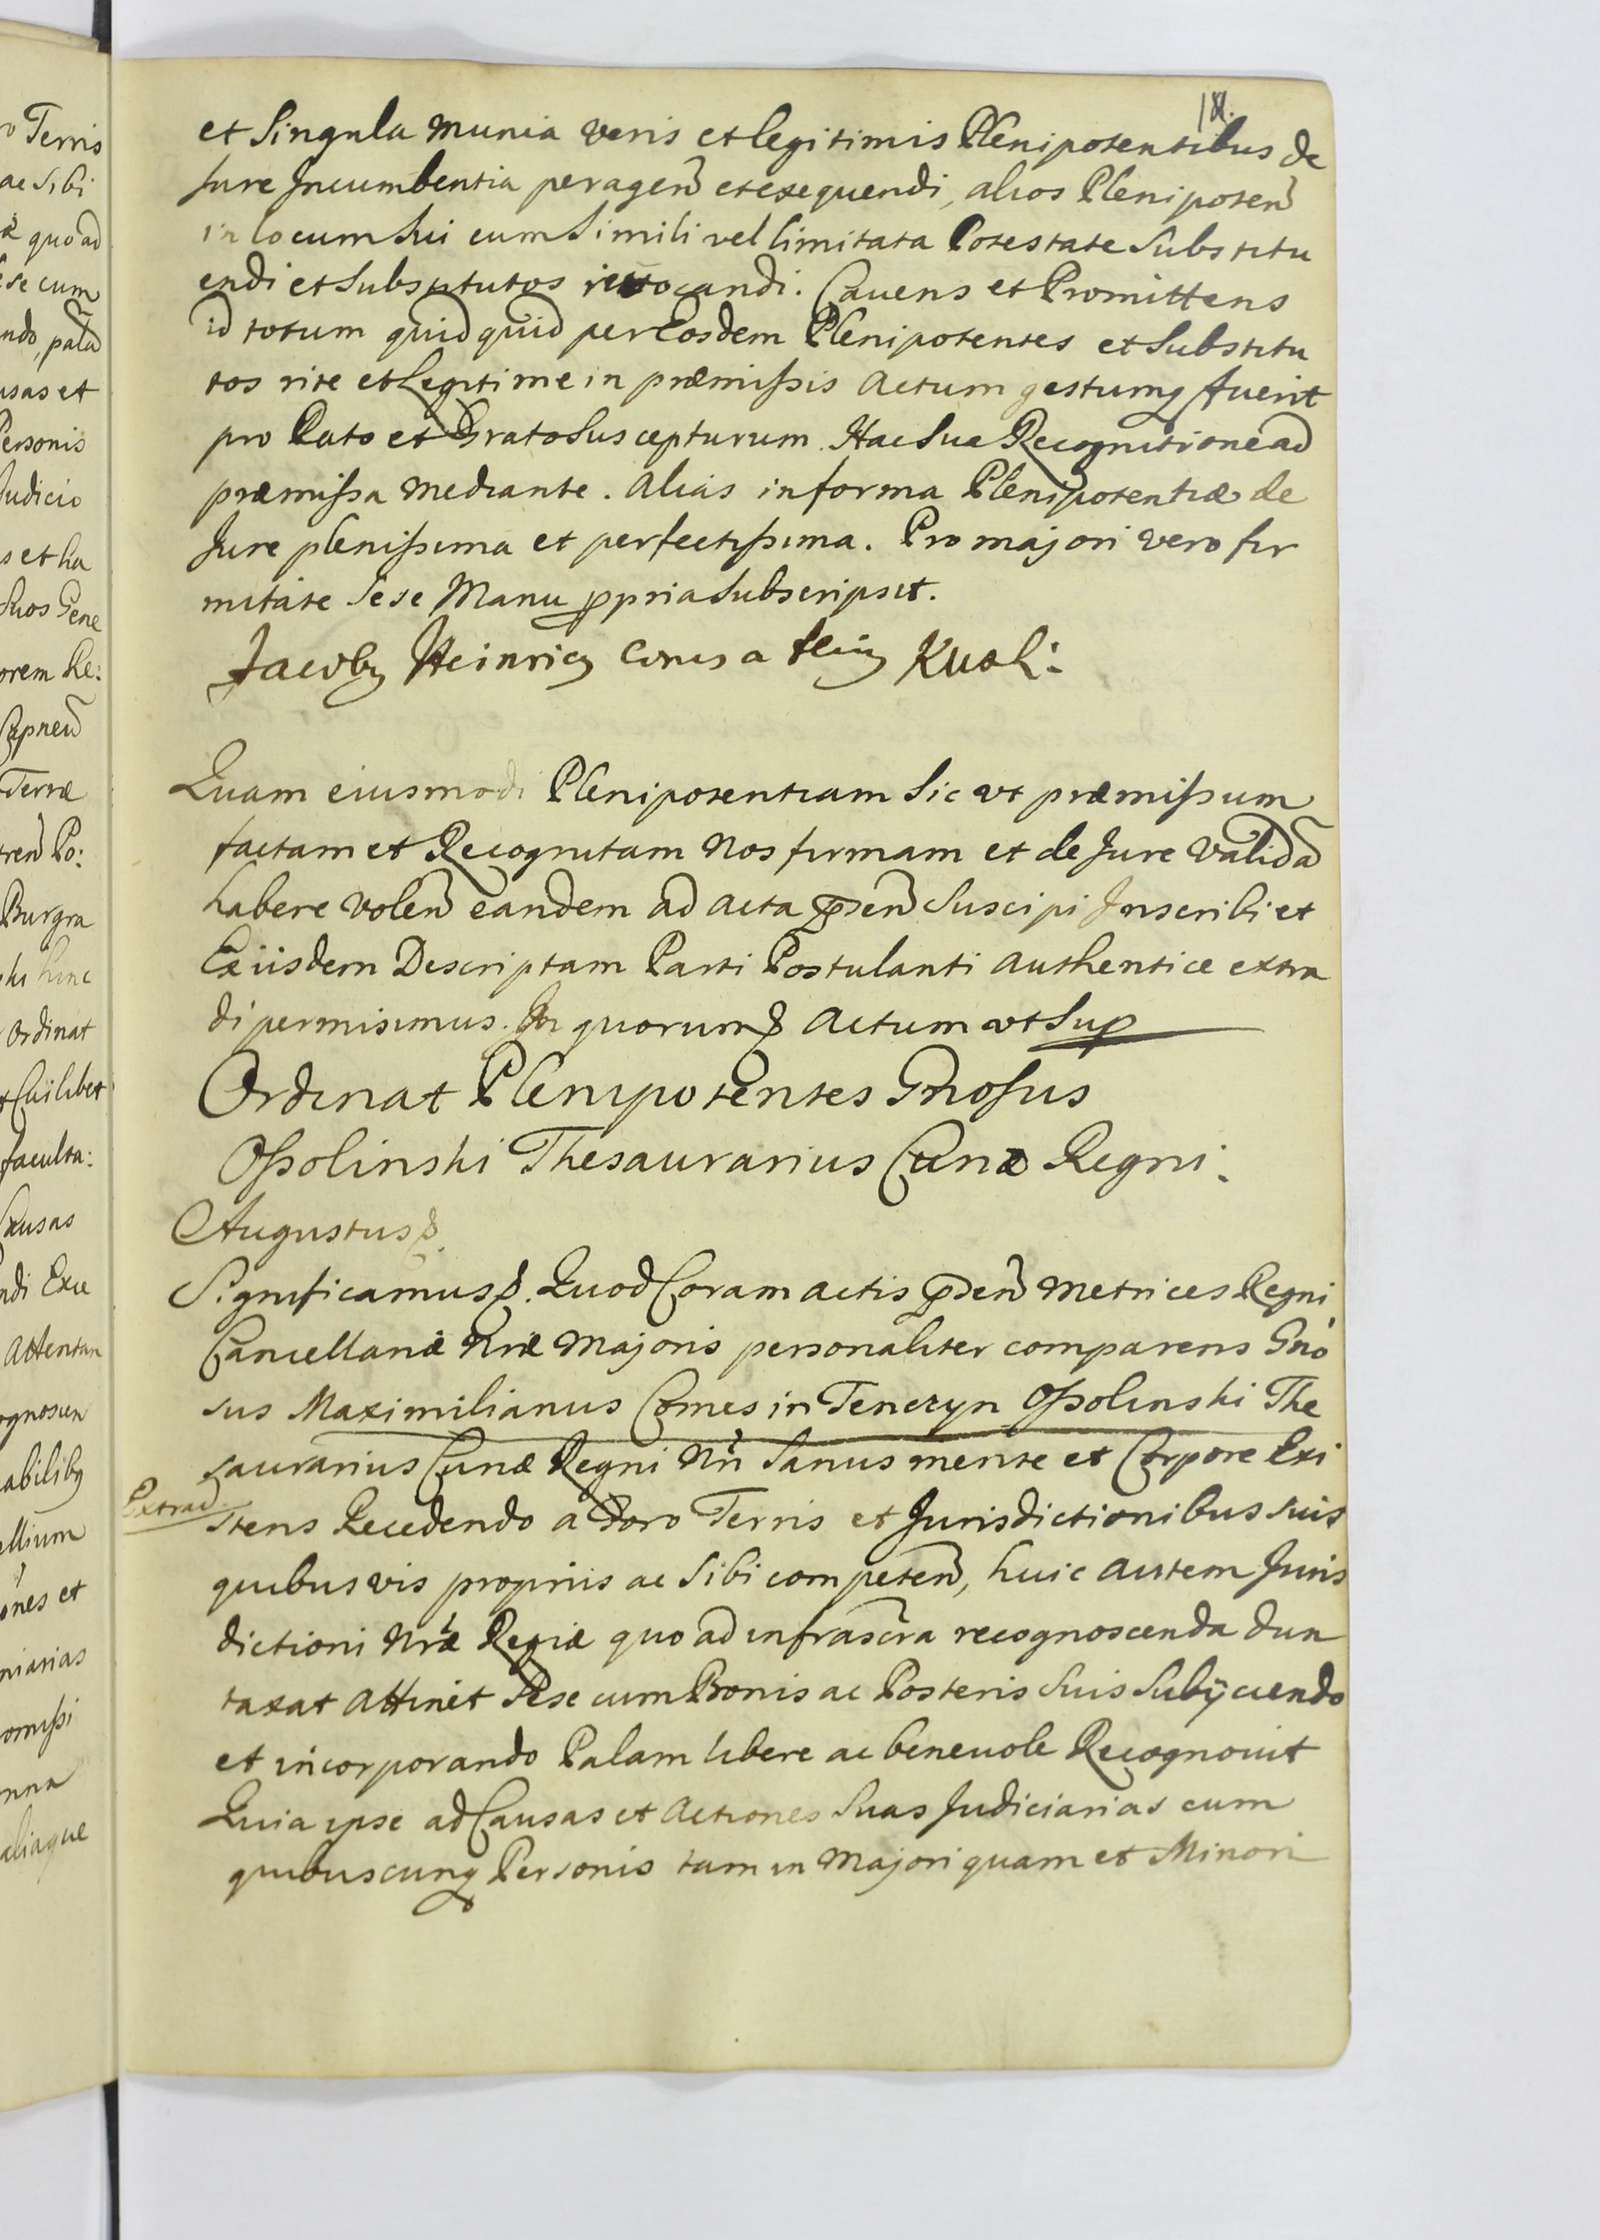 18.
et Singula munia veris et legitimis Plenipotentibus de
Jure Incumbentia peragen̄ et exequendi, alios Plenipoten̄
in locum Sui cum Simili vel limitata Potestate Substitu
endi et Substitutos revocandi. Cauens et Promittens
id totum quidquid per Eosdem Plenipotentes et Substitu
tos rite et Legitime in præmissis Actum gestumq fuerit
pro Rato et Grato Suscepturum. Hac Sua Recognitione ad
præmissa mediante. Alias in forma Plenipotentiæ de
Jure plenissima et perfectissima. Pro majori vero fir
mitate Sese Manu ppria Subscripsit.
Jacoby Heinricy Comes a
Quam eiusmodi Plenipotentiam Sic ut præmissum
factam et Recognitam Nos firmam et de Jure Validā
habere Volen̄ eandem ad Acta pn̄sen̄ Suscipi Inscribi et
Ex iisdem Descriptam Parti Postulanti Authentice extra
di permisimus. In quorum & Actum ut Sup
Ordinat Plenipotentes Gn̄osus
Ossolinski Thesaurarius Curiæ Regni.
Augustus &.
Significamus &. Quod Coram Actis pn̄sen̄ Metrices Regni
Cancellariæ Nr̄æ Majoris personaliter comparens Gn̄o
sus Maximilianus Comes in Tenczyn Ossolinski The
saurarius Curiæ Regni Nr̄i Sanus mente et Corpore Exi
Extrad
stens Recedendo a Foro Terris et Jurisdictionibus suis
quibusvis propriis ac Sibi competen̄, huic autem Juris
dictioni Nr̄æ Regiæ quo ad infrascr̄a recognoscenda dun
taxat Attinet Sese cum Bonis ac Posteris Suis Subijciendo
et incorporando Palam libere ac beneuole Recognouit
Quia ipse ad Causas et Actiones Suas Judiciarias cum
quibuscunq Personis tam in Majori quam et Minori